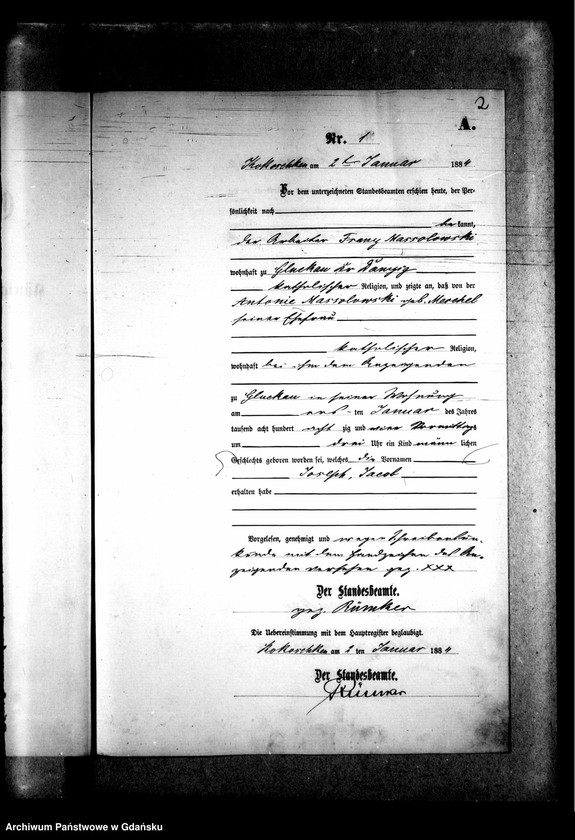 2
A.
Nr. 1
Kokoschken am 2t Januar 1884
Vor dem unterzeichneten Standesbeamten erschien heute, der Per-
sönlichkeit nach
bekannt,
der Arbeiter Franz Massolowski
wohnhaft zu Gluckau Kr Danzig
katholischer Religion, und zeigte an, daß von der
Antonie Massolowski geb. Merchel
seiner Ehefrau
katholischer Religion,
wohnhaft bei ihm dem Anzeigenden
zu Gluckau in seiner Wohnung
am ersten Januar des Jahres
tausend acht hundert acht zig und vier Vormittags
um drei Uhr ein Kind männlichen
Geschlechts geboren worden sei, welches die Vornamen
Joseph, Jacob
erhalten habe
Vorgelesen, genehmigt und wegen Schreibensun-
kunde mit dem Handzeichen des An-
zeigenden versehen gez. XXX
Der Standesbeamte.
gez. Rümker
Die Uebereinstimmung mit dem Hauptregister beglaubigt.
Kokoschken am 2 ten Januar 1884
Der Standesbeamte.
Rümker
Archiwum Państwowe w Gdańsku